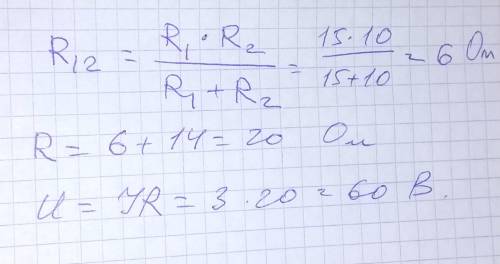 R₁₂ = (R₁ · R₂)/(R₁ + R₂) = (15 · 10)/(15 + 10) = 6 Ом
R = 6 + 14 = 20 Ом
U = IR = 3 · 20 = 60 В.